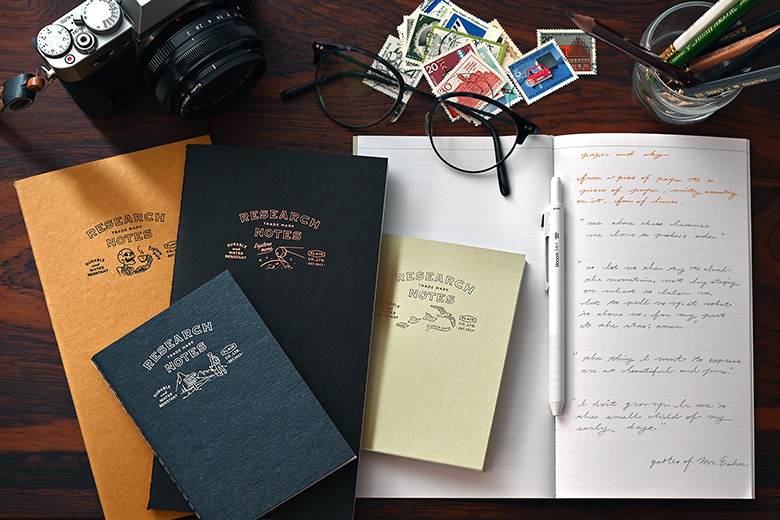 RESEARCH
TRADE MARK
NOTES
DURABLE
AND
WATER
RESISTANT
RESEARCH
TRADE MARK
NOTES
DURABLE
AND
WATER
RESISTANT
Explore
more
PLAIN
CO., LTD.
EST. 2013
RESEARCH
TRADE MARK
NOTES
DURABLE
AND
WATER
RESISTANT
PLAIN
CO., LTD.
EST. 2013
RESEARCH
TRADE MARK
NOTES
PLAIN
CO., LTD.
EST. 2013
20
30
5
paper and sky
from a piece of paper to a
piece of paper,
on it, form of lines.
"we adore chaos because
we love to produce order."
"so let us then try to climb
the mountain, not by stepping
on what is below us,
but to pull us up at what
is above us, for my part
at the stars; amen."
"the thing I want to express
are so beautiful and pure."
"I don't grow up. In me is
the small child of my
early days."
quotes of Mr. Escher